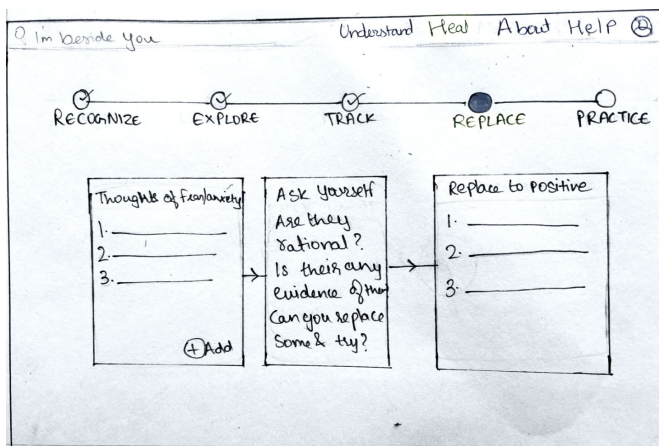 Im beside you
Understand Heal About Help
RECOGNIZE EXPLORE TRACK REPLACE PRACTICE
Thoughts of Fear/anxiety
1.
2.
3.
+ Add
Ask Yourself
Are they
rational?
Is their any
evidence of them
Can you replace
Some & try?
Replace to positive
1.
2.
3.